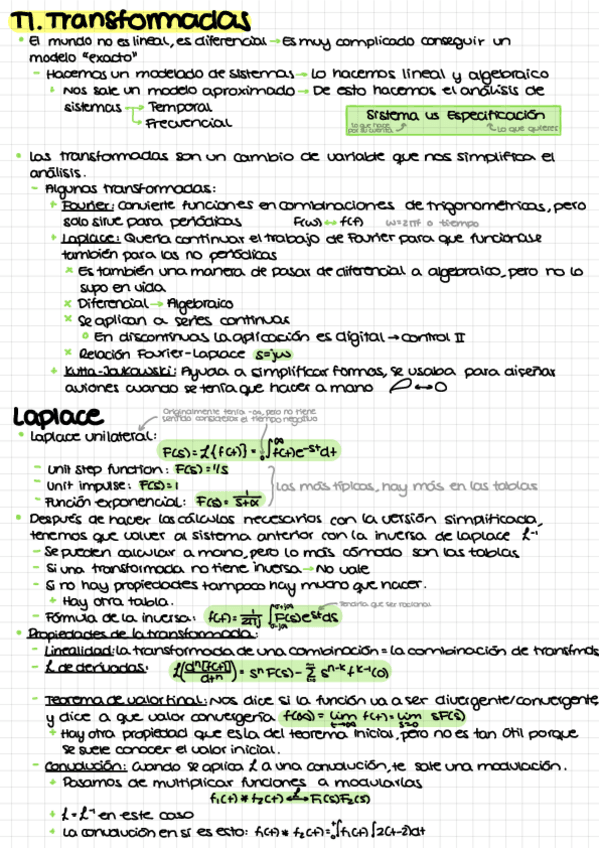 T1. Transformadas
• El mundo no es lineal, es diferencial → Es muy complicado conseguir un
modelo "exacto"
- Hacemos un modelado de sistemas → Lo hacemos lineal y algebraico
+ Nos sale un modelo aproximado → De esto hacemos el análisis de
sistemas → Temporal
→ Frecuencial
Sistema vs Especificación
Lo que hace por su cuenta
Lo que quieres
• Las transformadas son un cambio de variable que nos simplifica el
análisis.
- Algunas transformadas:
+ Fourier: Convierte funciones en combinaciones de trigonométricas, pero
solo sirve para periódicas F(w) ↔ f(t) w=2πf o tiempo
+ Laplace: Quería continuar el trabajo de Fourier para que funcionase
también para las no periódicas
× Es también una manera de pasar de diferencial a algebraico, pero no lo
supo en vida
× Diferencial → Algebraico
× Se aplican a series continuas
o En discontinuas la aplicación es digital → Control II
× Relación Fourier-Laplace s=jw
+ Kutta-Joukowski: Ayuda a simplificar formas, se usaba para diseñar
aviones cuando se tenía que hacer a mano ↔ O
Laplace
Originalmente tenía -∞, pero no tiene
sentido considerar el tiempo negativo
• Laplace unilateral:
F(s) = ℒ{f(t)} = ₀∫^∞ f(t)e^-st dt
- Unit step function: F(s) = 1/s
- Unit impulse: F(s) = 1
- Función exponencial: F(s) = 1/(s+a)
Las más típicas, hay más en las tablas
• Después de hacer los cálculos necesarios con la versión simplificada,
tenemos que volver al sistema anterior con la inversa de laplace ℒ⁻¹
- Se pueden calcular a mano, pero lo más cómodo son las tablas
- Si una transformada no tiene inversa → No vale
- Si no hay propiedades tampoco hay mucho que hacer.
+ Hay otra tabla.
Tendría que ser racional
- Fórmula de la inversa: f(t) = 1/(2πj) ∫ F(s)e^st ds
• Propiedades de la transformada:
- Linealidad: la transformada de una combinación = la combinación de transfmds
- ℒ de derivadas: ℒ{dⁿ[f(t)]/dtⁿ} = sⁿF(s) - Σ s^n-k f^k-1(0)
- Teorema de valor final: Nos dice si la función va a ser divergente/convergente
y dice a que valor convergería f(∞) = lim t→∞ f(t) = lim s→0 sF(s)
+ Hay otra propiedad que es la del teorema inicial, pero no es tan útil porque
se suele conocer el valor inicial.
- Convolución: Cuando se aplica ℒ a una convolución, te sale una modulación.
+ Pasamos de multiplicar funciones a modularlas
f₁(t) * f₂(t) ↔ F₁(s)F₂(s)
+ ℒ = ℒ⁻¹ en este caso
+ La convolución en sí es esto: f₁(t) * f₂(t) =